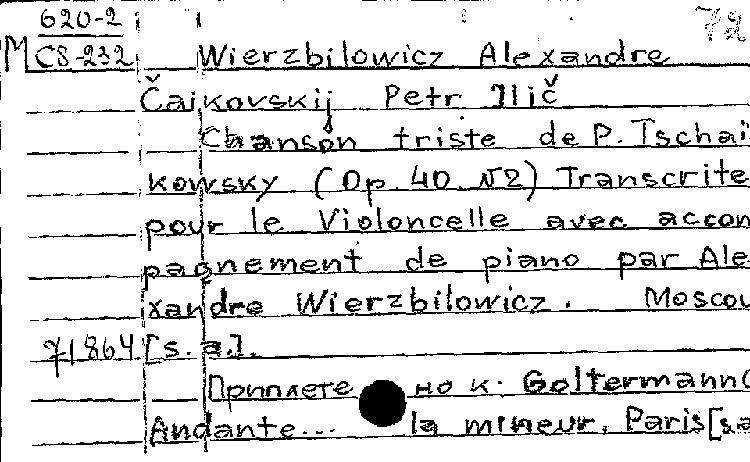 620-2 72
M CS-232 Wierzbilowicz Alexandre
Čajkovskij Petr Ilič
Chanson triste de P. Tschai
kowsky (Op. 40 N2) Transcrite
pour le Violoncelle avec accom
pagnement de piano par Ale
xandre Wierzbilowicz. Moscou
71864 [s. a.].
Приплетено к. Goltermann G
Andante... la mineur. Paris [sa